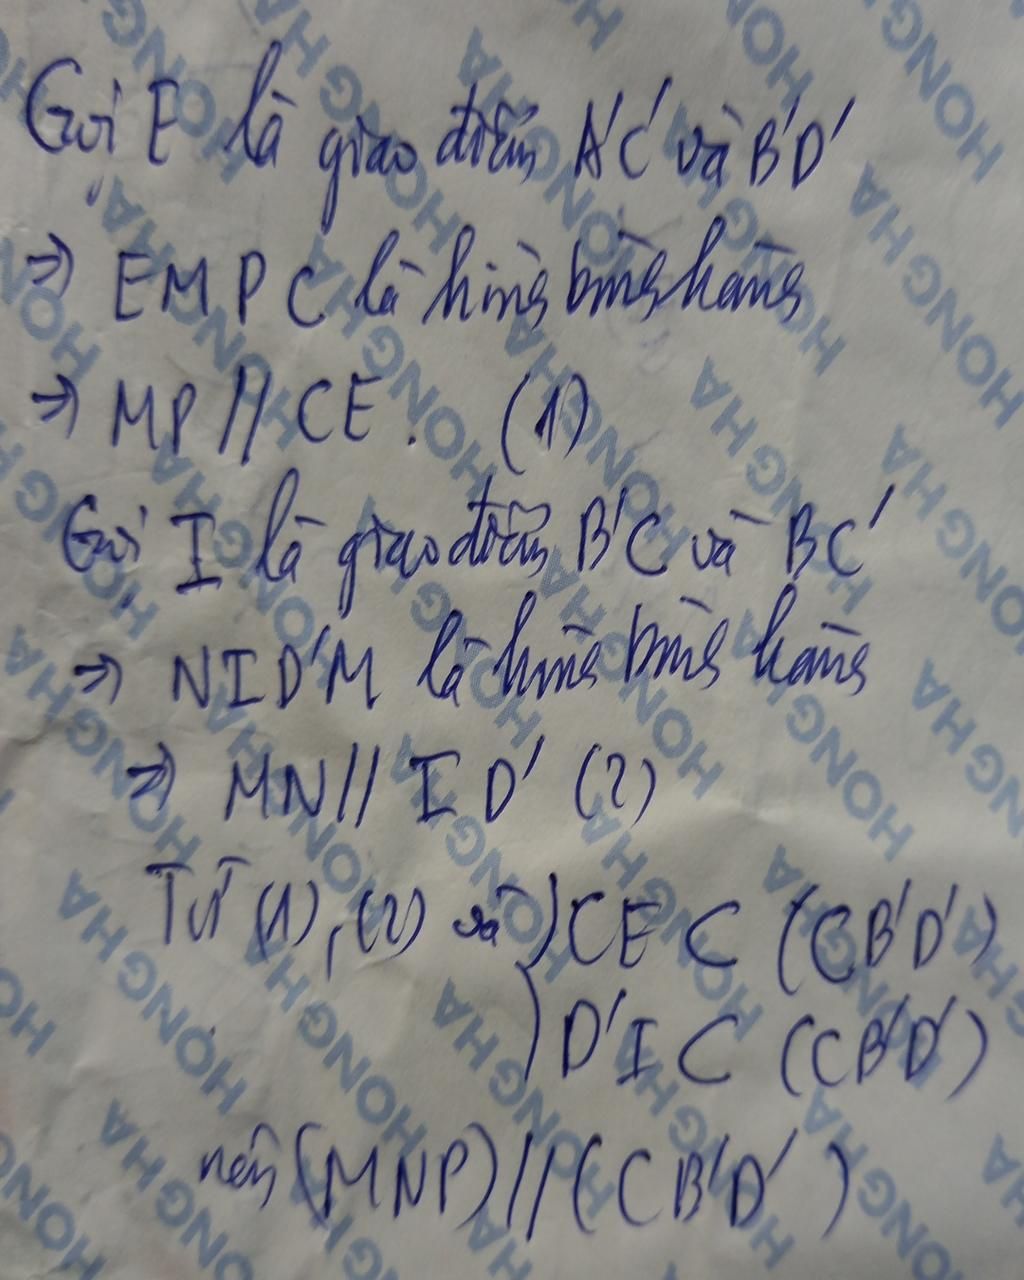 Gọi E là giao điểm A'C' và B'D'
⇒ EMPC là hình bình hành
⇒ MP // CE. (1)
Gọi I là giao điểm B'C và BC'
⇒ NID'M là hình bình hành
⇒ MN // ID' (2)
Từ (1), (2) và } CE ⊂ (CB'D')
} D'I ⊂ (CB'D')
nên (MNP) // (CB'D')
HONG HA